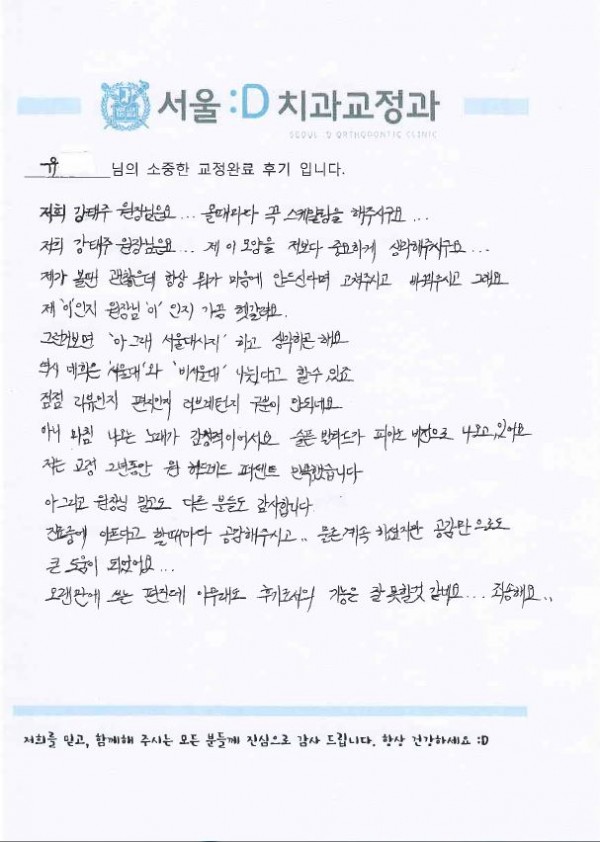 서울 :D 치과교정과
SEOUL :D ORTHODONTIC CLINIC
유 님의 소중한 교정완료 후기 입니다.
저희 강태주 원장님은요... 올때마다 꼭 스케일링을 해주시구요...
저희 강태주 원장님은요... 제 이 모양을 저보다 중요하게 생각해주시구요...
제가 볼땐 괜찮은데 항상 뭐가 마음에 안드신다며 고쳐주시고 바꿔주시고 그래요
제 '이'인지 원장님 '이' 인지 가끔 헷갈려요.
그런거보면 '아 그래 서울대시지' 하고 생각하곤 해요
역시 대학은 '서울대'와 '비서울대' 나뉜다고 할수 있죠
점점 리뷰인지 편지인지 러브레턴지 구분이 안되네요
아니 마침 나오는 노래가 감정적이어서요 슬픈 발라드가 피아노 버전으로 나오고 있어요
저는 교정 2년동안 원 헌드레드 퍼센트 만족했습니다
아 그리고 원장님 말고도 다른 분들도 감사합니다
진료중에 아프다고 할때마다 공감해주시고.. 물론 계속 하셨지만 공감만으로도
큰 도움이 되었어요...
오랜만에 쓰는 편진데 아무래도 후기로서의 기능은 잘 못할것 같네요... 죄송해요..
저희를 믿고, 함께해 주시는 모든 분들께 진심으로 감사 드립니다. 항상 건강하세요 :D